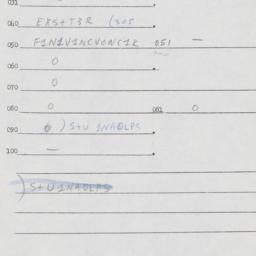 031
040 EXS+T3R (305
050 F1N1V1NCVONC1R 051 —
060 0
070 0
080 0 081 0
090 6 ) S+U 1NAQLPS
100 —
) S+U1NAQLPS